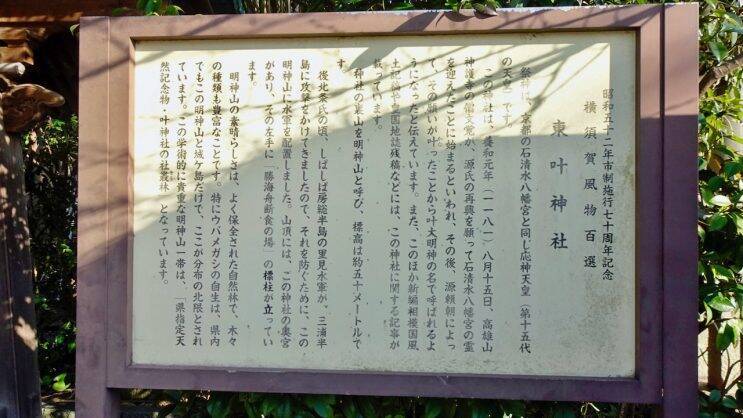 昭和五十二年市制施行七十周年記念
横須賀風物百選
東叶神社
祭神は、京都の石清水八幡宮と同じ応神天皇(第十五代
の天皇)です。
この神社は、養和元年(一一八一)八月十五日、高雄山
神護寺の僧文覚が、源氏の再興を願って石清水八幡宮の霊
を迎えたことに始まるといわれ、その後、源頼朝によっ
て、その願いが叶ったことから叶大明神の名で呼ばれるよ
うになったと伝えています。また、このほか新編相模国風
土記稿や皇国地誌残稿などには、この神社に関する記事が
載っています。
神社の裏山を明神山と呼び、標高は約五十メートルで
す。
後北条氏の頃、しばしば房総半島の里見水軍が、三浦半
島に攻撃をかけてきましたので、それを防ぐために、この
明神山に水軍を配置しました。山頂には、この神社の奥宮
があり、その左手に「勝海舟断食の場」の標柱が立ってい
ます。
明神山の素晴らしさは、よく保全された自然林で、木々
の種類も豊富なことです。特にウバメガシの自生は、県内
でもこの明神山と城ケ島だけで、ここが分布の北限とされ
ています。この学術的に貴重な明神山一帯は、「県指定天
然記念物・叶神社の社叢林」となっています。